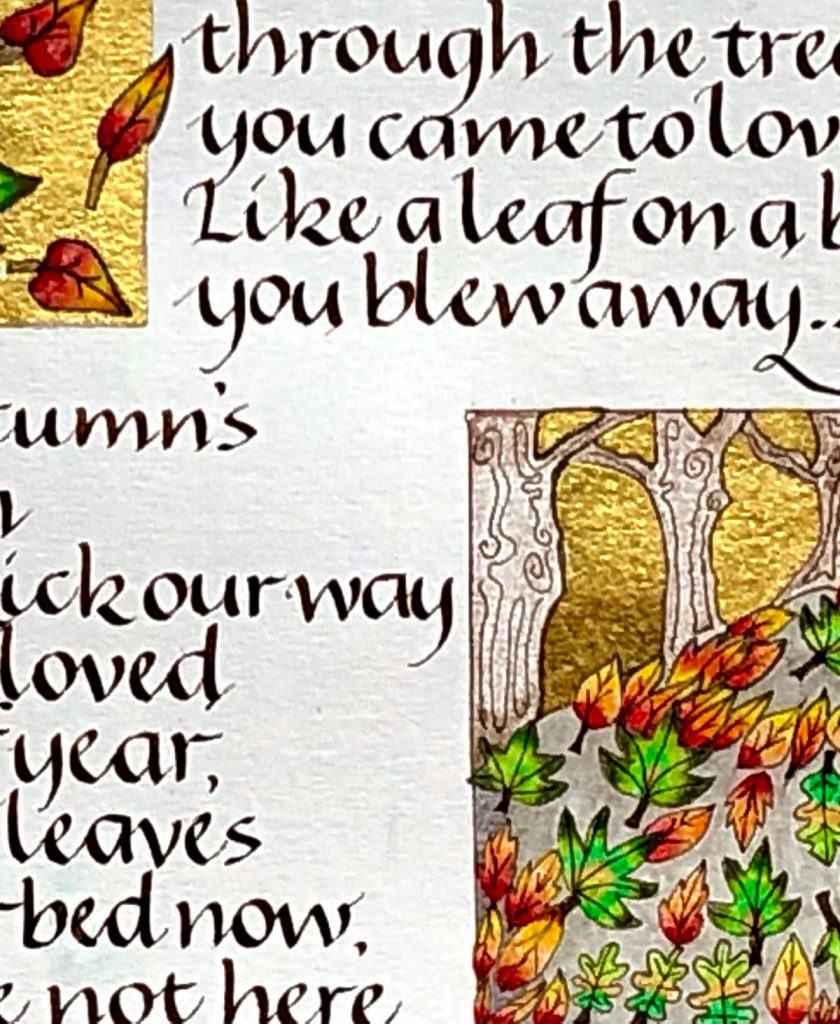 through the tree
you came to lov
Like a leaf on a b
you blew away..
tumn's
ick our way
loved
year,
leaves
-bed now,
not here